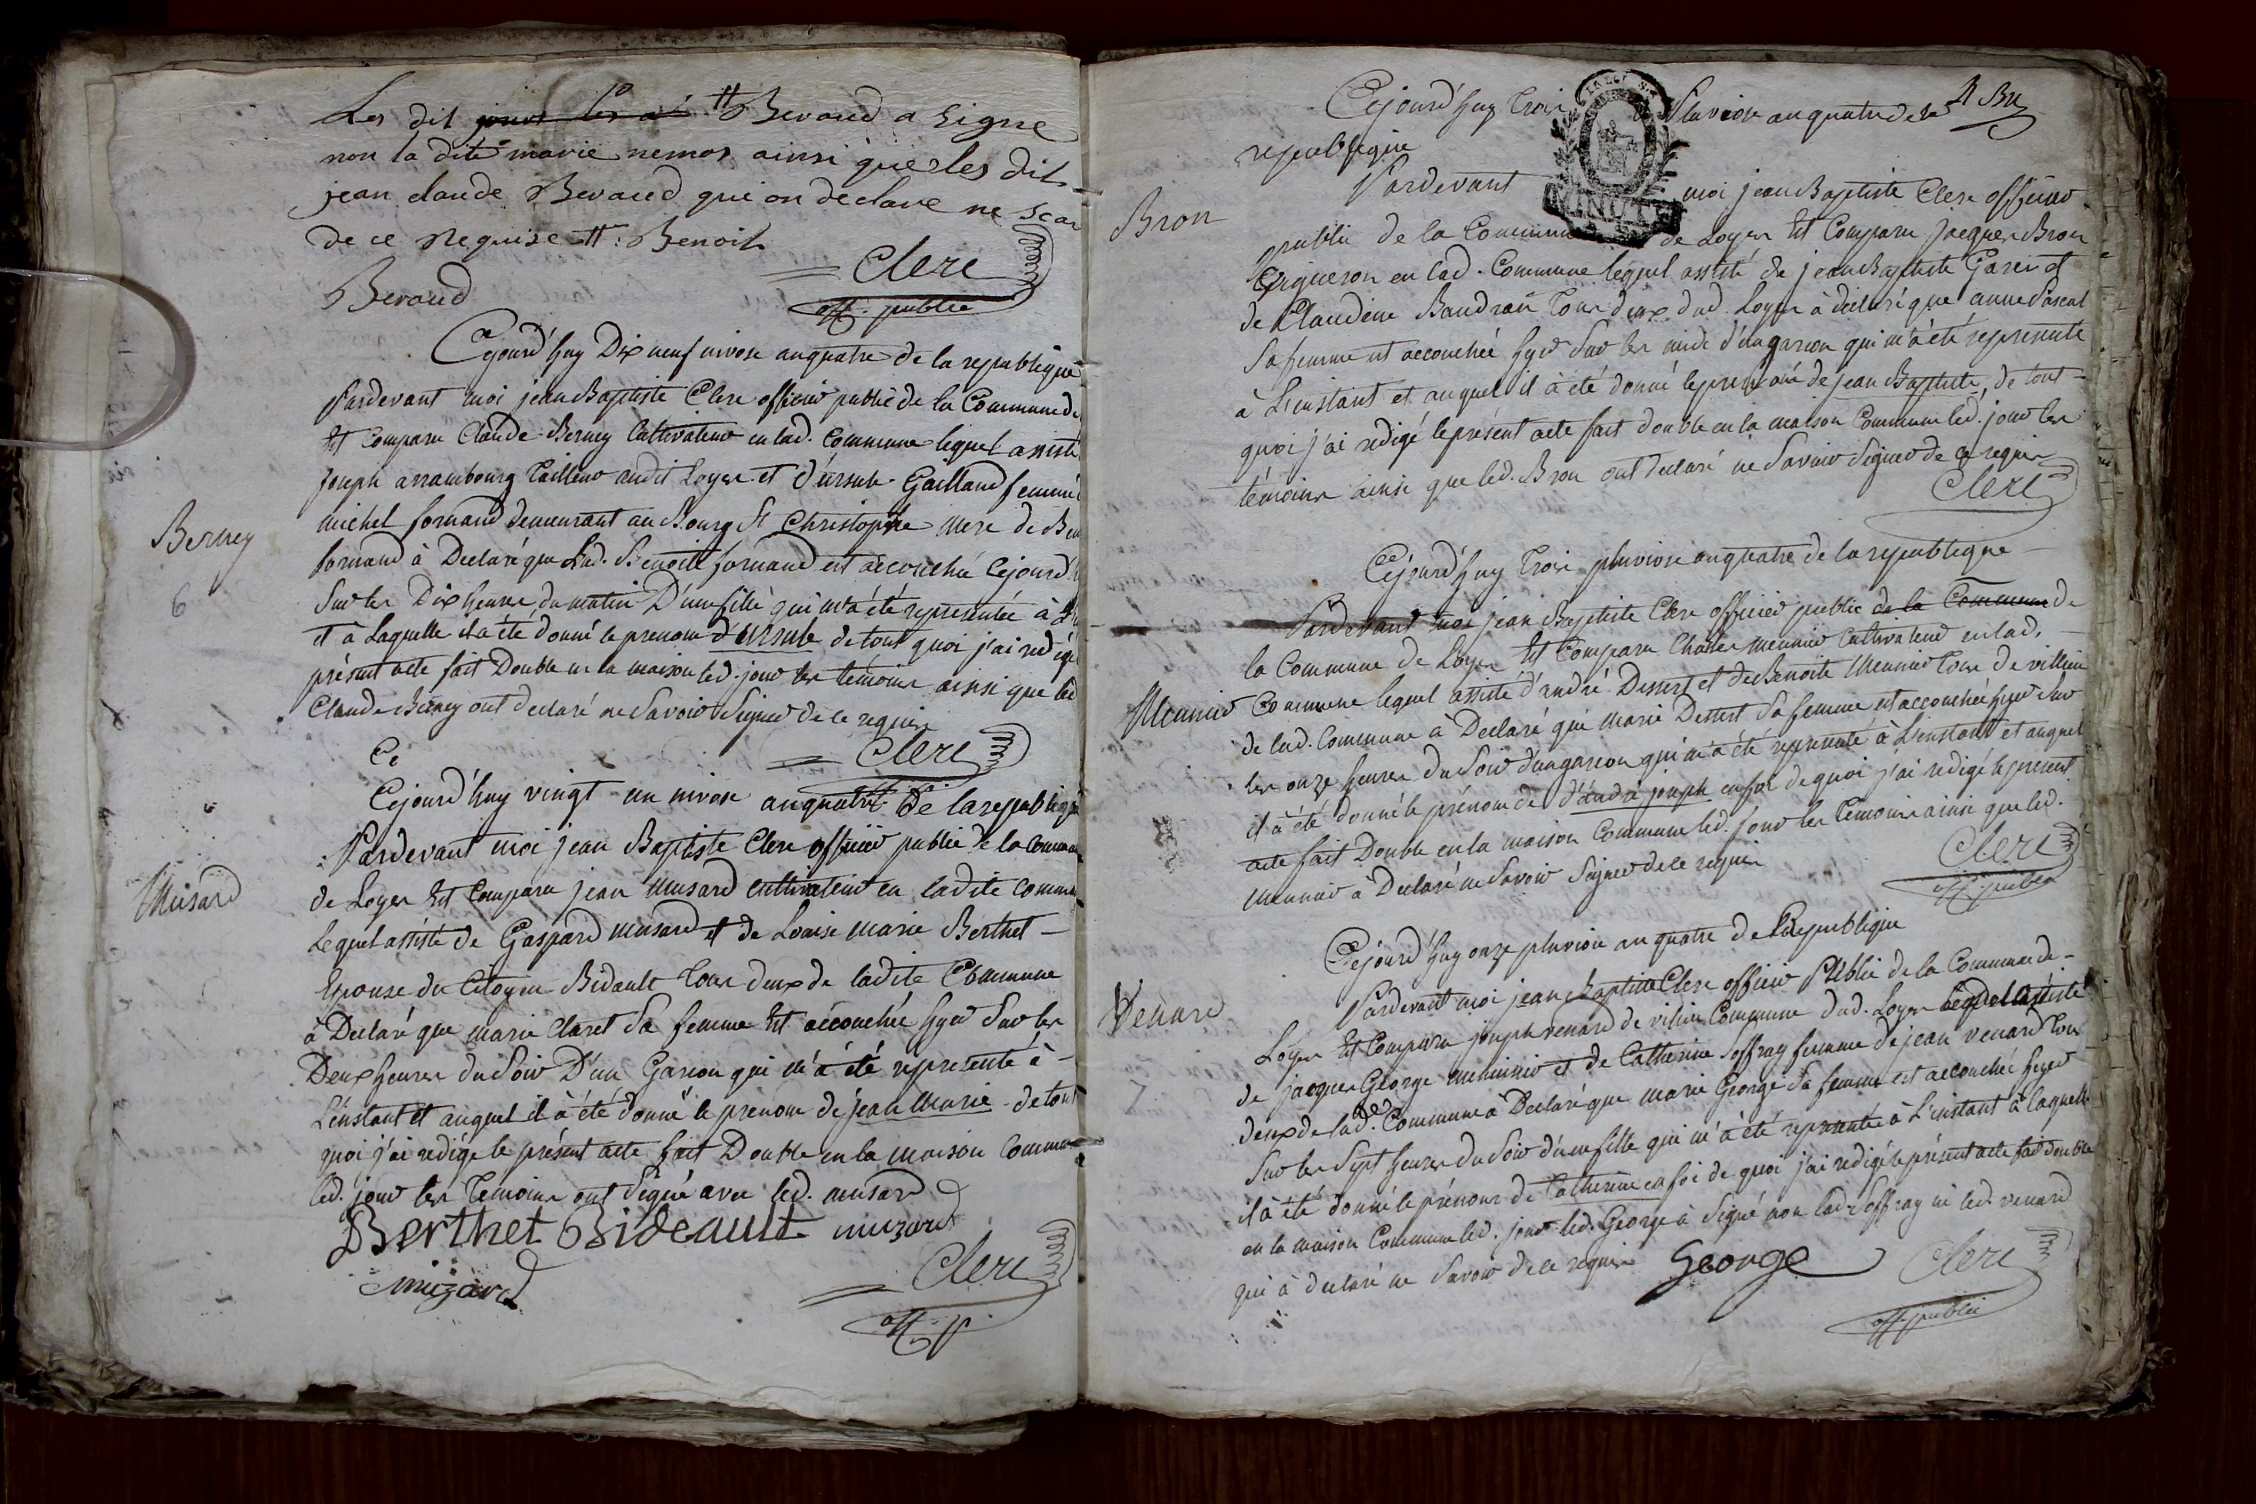 Les dit jour les a # Beraud a signe
non la dite marie nemos ainsi que les dit
jean claude Beraud qui on declare ne sca
de ce Requise #: Benoit
Beraud
Clerc
off. public
Cejourd'huy Dix neuf nivose an quatre de la republique
Pardevant moi jean Baptiste Clerc officier public de la Commune de
Est Comparu Claude Berney Cultivateur en lad. Commune lequel assisté
joseph arrambourg Tailleur audit Loyer et d'ursule Gailland femme
michel fornand demeurant au Bourg St Christophe mere de Ben
fornand à Declaré que Lad. Benoite fornand est accouchée Cejourd'h
Berney
Sur les Dix heures du matin D'une fille qui m'a été representée à L'in
6
et à Laquelle il a été donné le prenom d'ursule de tout quoi j'ai redigé
présent acte fait Double en la maison led. jour les témoins ainsi que led
Claude Berney ont declaré ne Savoir Signer de ce requis
Clerc
Ce
Cejourd'huy vingt un nivose an quatre de la republique
Pardevant moi jean Baptiste Clerc officier public de la Commune
de Loyer Est Comparu jean Musard cultivateur en ladite Commune
Musard
Lequel assisté de Gaspard musard et de Louise Marie Berthet
Epouse du Citoyen Bidault tous deux de ladite Commune
à Declaré que marie Claret Sa femme Est accouchée hyer Sur les
Deux heures du Soir D'un Garson qui m'a été representé à
L'instant et auquel il à été donné le prenom de jean Marie de tout
quoi j'ai redigé le présent acte fait Double en la maison Commune
led. jour les Temoins ont Signé avec led. musard
Berthet Bideault muzard
muzard
Clerc
off. p.
4 Bu
Cejourd'huy Trois Pluviose an quatre de la
republique
MINUTE
Pardevant moi jean Baptiste Clerc officier
Bron
public de la Commune de Loyer Est Comparu jacques Bron
Vigneron en lad. Commune lequel assisté de jean Baptiste Garer et
de Claudine Baudran Tous deux dud. Loyer à declaré que anne Pascal
Sa femme est accouchée hyer Sur les midi d'un garson qui m'a été representé
à L'instant et auquel il à été donné le prenom de jean Baptiste, de tout
quoi j'ai redigé le présent acte fait double en la maison Commune led. jour les
témoins ainsi que led. Bron ont declaré ne Savoir Signer de ce requis
Clerc
Cejourd'huy Trois pluviose an quatre de la republique
Pardevant moi jean Baptiste Clerc officier public de la Commune de
la Commune de Loyer Est Comparu Charles meunier Cultivateur en lad.
Meunier
Commune lequel assisté d'andré Dessert et de Benoite Meunier Tous de villieu
de lad. Commune à Declaré que Marie Dessert Sa femme est accouchée hyer Sur
les onze heures du Soir d'un garson qui m'a été representé à L'instant et auquel
il à été donné le prénom de d'andré joseph en foi de quoi j'ai redigé le present
acte fait Double en la maison Commune led. jour les Temoins ainsi que led.
Meunier à Declaré ne Savoir Signer de ce requis
Clerc
off. public
Cejourd'huy onze pluviose an quatre de la Republique
Pardevant moi jean Baptiste Clerc officier Public de la Commune de
Venard
Loyer Est Comparu joseph venard de villieu Commune dud. Loyer Lequel assisté
de jacques George menuisier et de Catherine Soffray femme de jean venard tous
7
deux de lad. Commune à Declaré que marie George Sa femme est accouchée hyer
Sur les Sept heures du Soir d'une fille qui m'a été representée à L'instant à laquelle
il à été donné le prénom de Catherine en foi de quoi j'ai redigé le présent acte fait double
en la maison Commune led. jour led. George à Signé non lad. Soffray ni led. venard
qui à declaré ne Savoir de ce requis George
Clerc
off. public